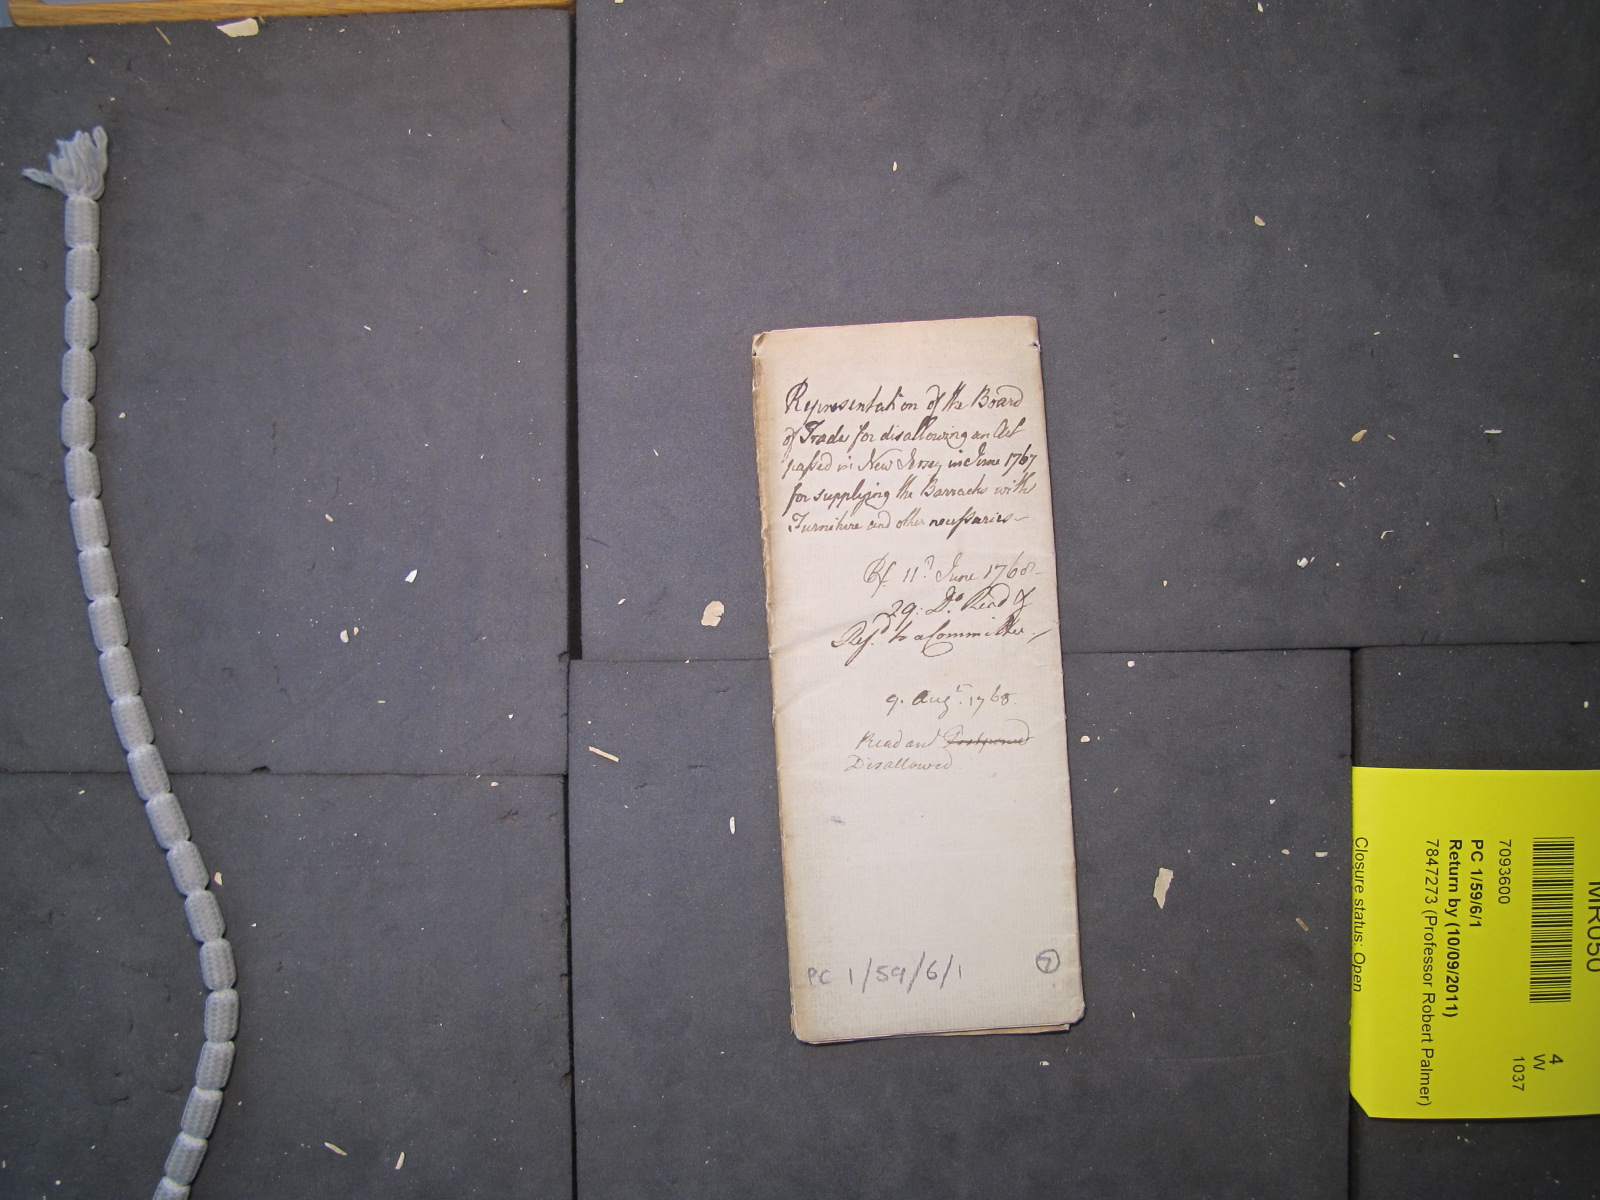 Representation of the Board
of Trade for disallowing an Act
passed in New Jersey in June 1767
for supplying the Barracks with
Furniture and other necessaries—
11.th June 1768—
29: Do. Read &
Refd. to a Committee
9. Augt. 1768.
Read and Postponed
Disallowed
PC 1/59/6/1
7
MR050
7093600
PC 1/59/6/1
Return by (10/09/2011)
7847273 (Professor Robert Palmer)
Closure status: Open
4
W
1037